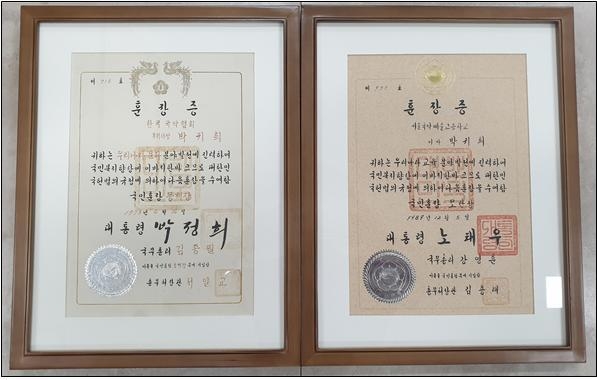 제 호
훈 장 증
한국국악협회
박귀희
귀하는 우리나라 문화 분야발전에 진력하여
국민복지향상에 이바지한바 크므로 대한민
국헌법의 규정에 의하여 다음 훈장을 수여함
국민훈장
대통령 박정희
국무총리 김종필
총무처장관 서일교
제 호
훈 장 증
서울국악예술고등학교
이사 박귀희
귀하는 우리나라 교육 분야발전에 진력하여
국민복지향상에 이바지한바 크므로 대한민
국헌법의 규정에 의하여 다음 훈장을 수여함
국민훈장 모란장
1989년 12월 5일
대통령 노태우
국무총리 강영훈
총무처장관 김용래